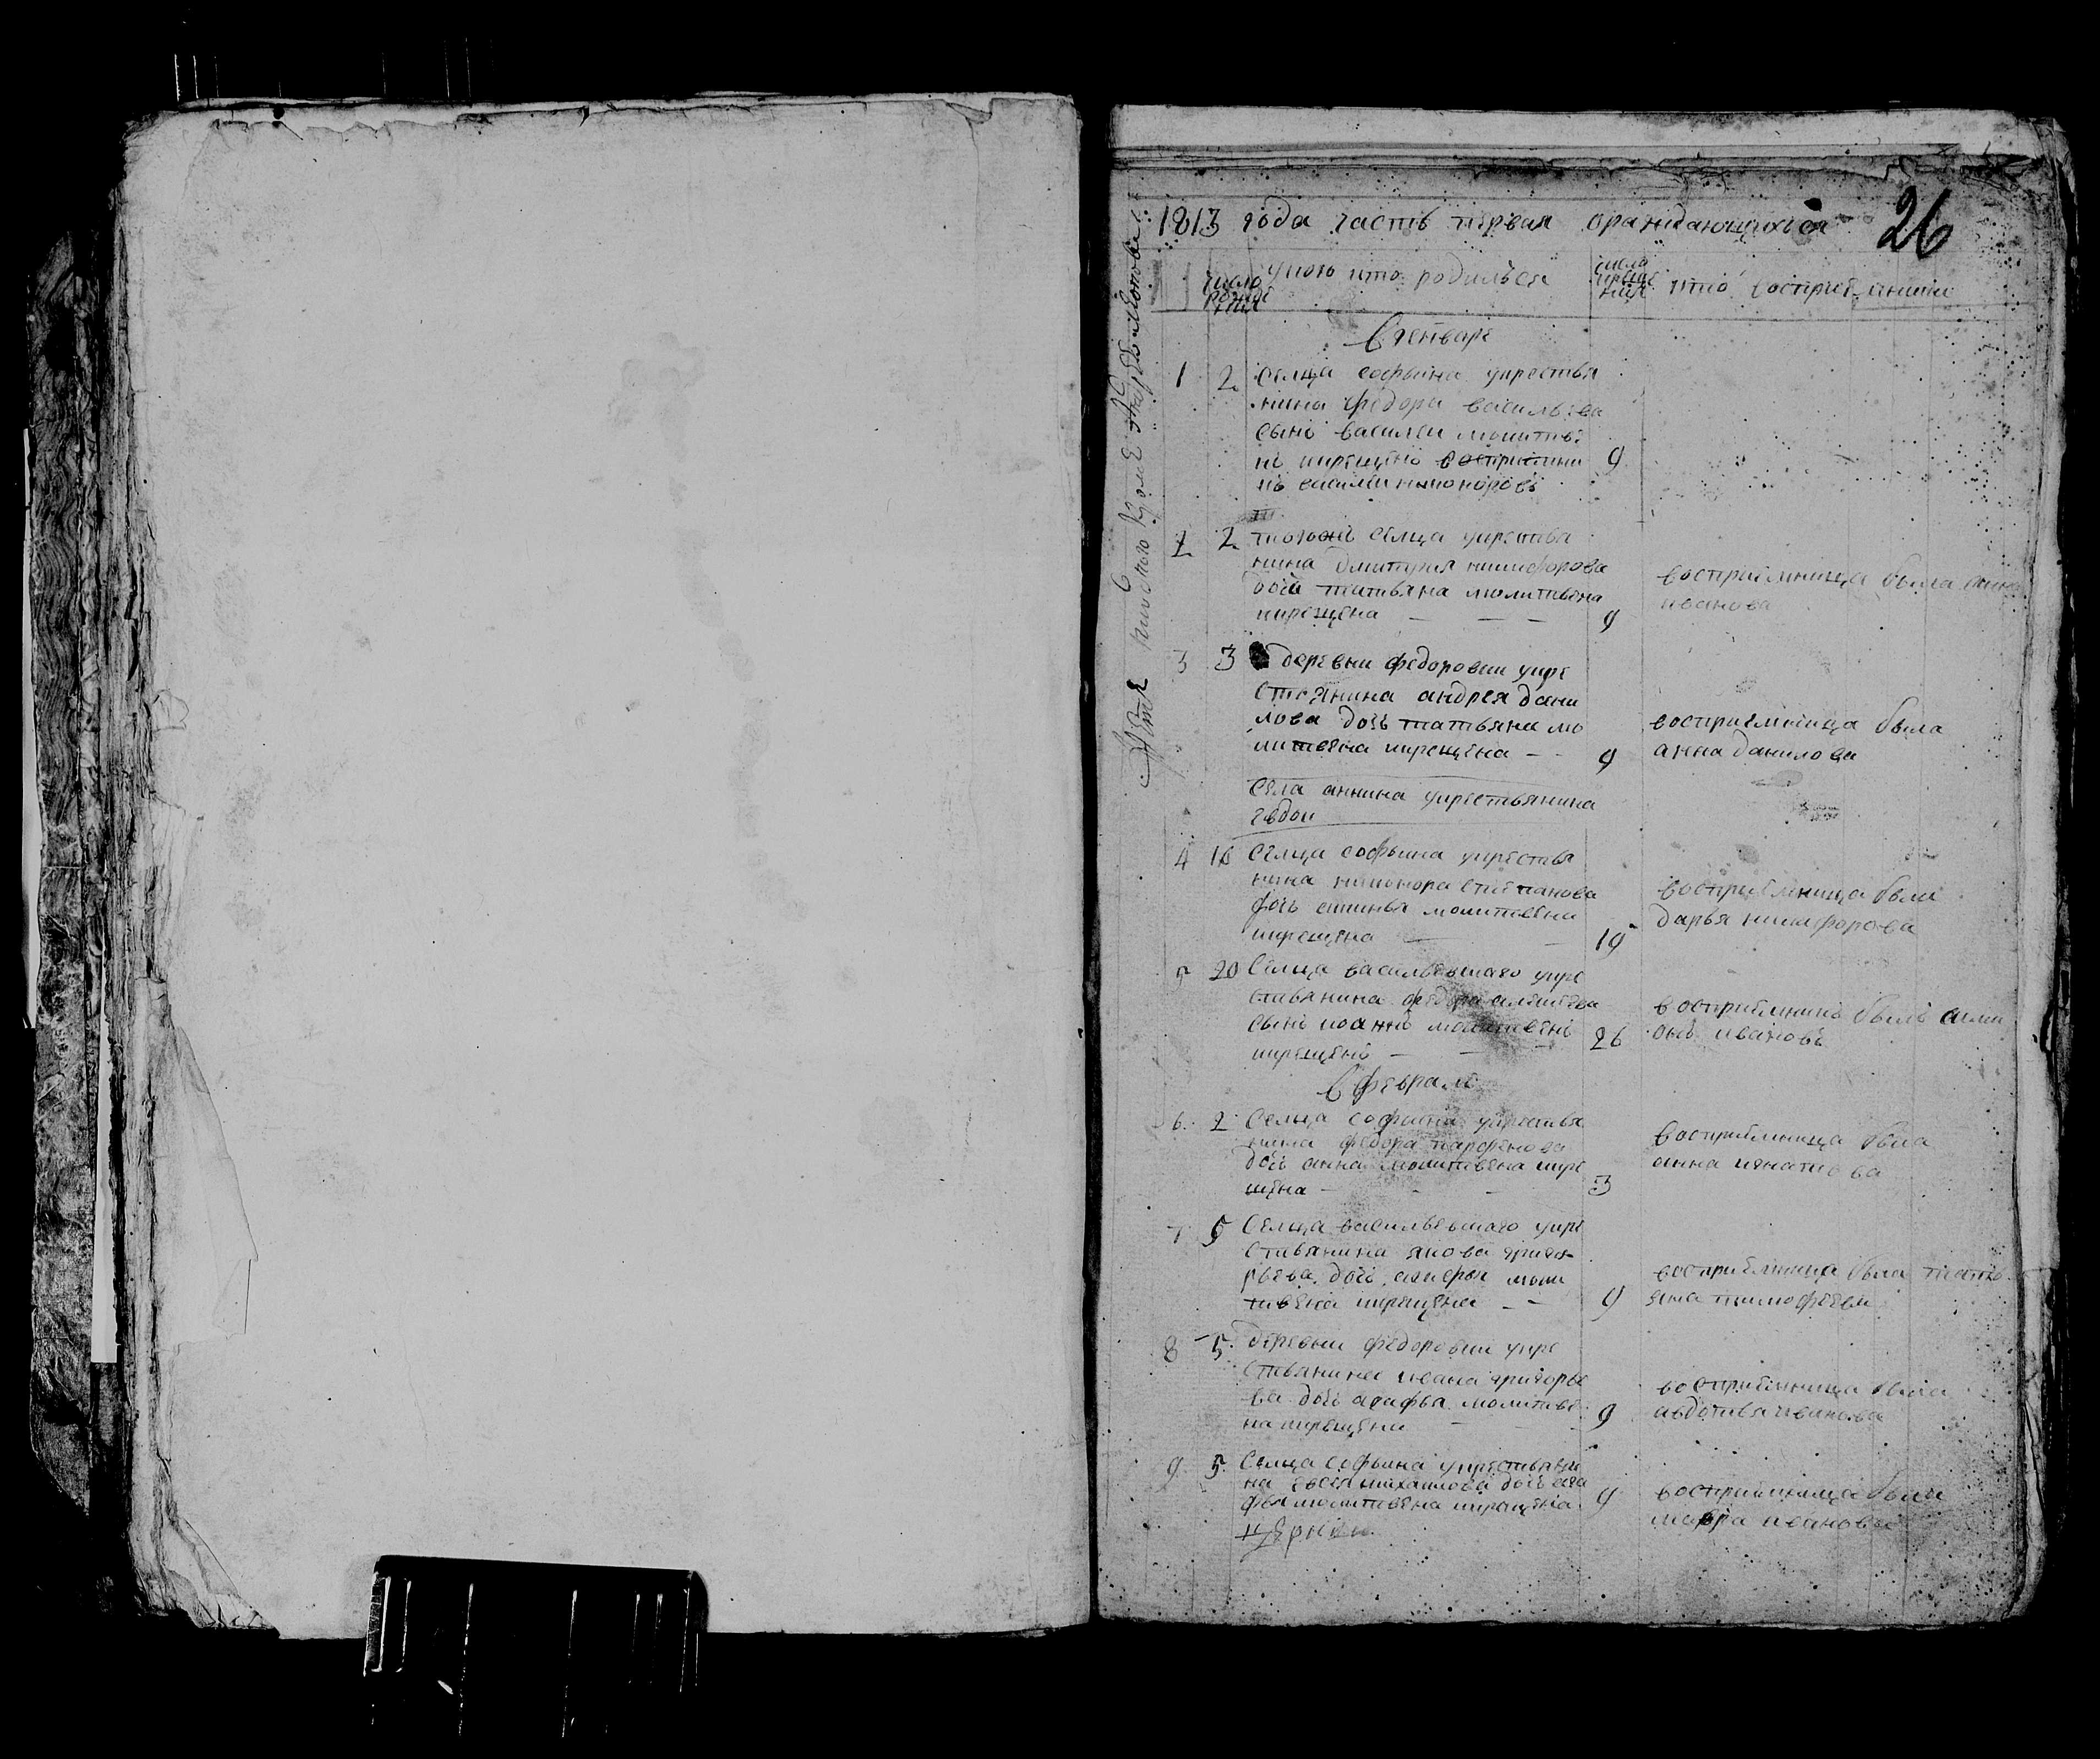 1813 года часть первая ораждающихъся 26
число рождения
у кого кто родилъся
число крещения
кто восприемники
В генваре
1 2 Селца софьина укрестья
нина федора васильева
сынъ василеи молитве
нъ крещенъ восприемни 9
къ василеи никоноровъ
2 2 тогожъ селца укрестья
нина дмитрия никифорова
дочь татьяна молитвена
крещена 9
восприемница была анна
иванова
3 3 деревни федоровки укре
стьянина андрея дани
лова дочь татьяна мо
литвена крещена 9
восприемница была
анна данилова
Села аннина укрестьянина
евдок
4 16 Селца софьина укрестья
нина никонора степанова
дочь молитвена
крещена 19
восприемница была
дарья никифорова
5 20 Селца васильевскаго укре
стьянина федора алексеева
сынъ иоаннъ молитвенъ
крещенъ 26
восприемникъ былъ сими
онъ ивановъ
В феврале
6 2 Селца софьина укрестья
нина федора парфенова
дочь анна молитвена кре
щена 3
восприемница была
анна игнатиева
7 5 Селца васильевскаго укре
стьянина якова григо
рьева дочь молитвена
крещена 9
восприемница была тать
яна тимофеева
8 5 деревни федоровки укре
стьянина ивана григорье
ва дочь агафья молитве
на крещена 9
восприемница была
авдотья иванова
9 5 Селца софьина укрестьяни
на евсея михаилова дочь ага
фья молитвена крещена 9
восприемница была
мавра иванова
церкви